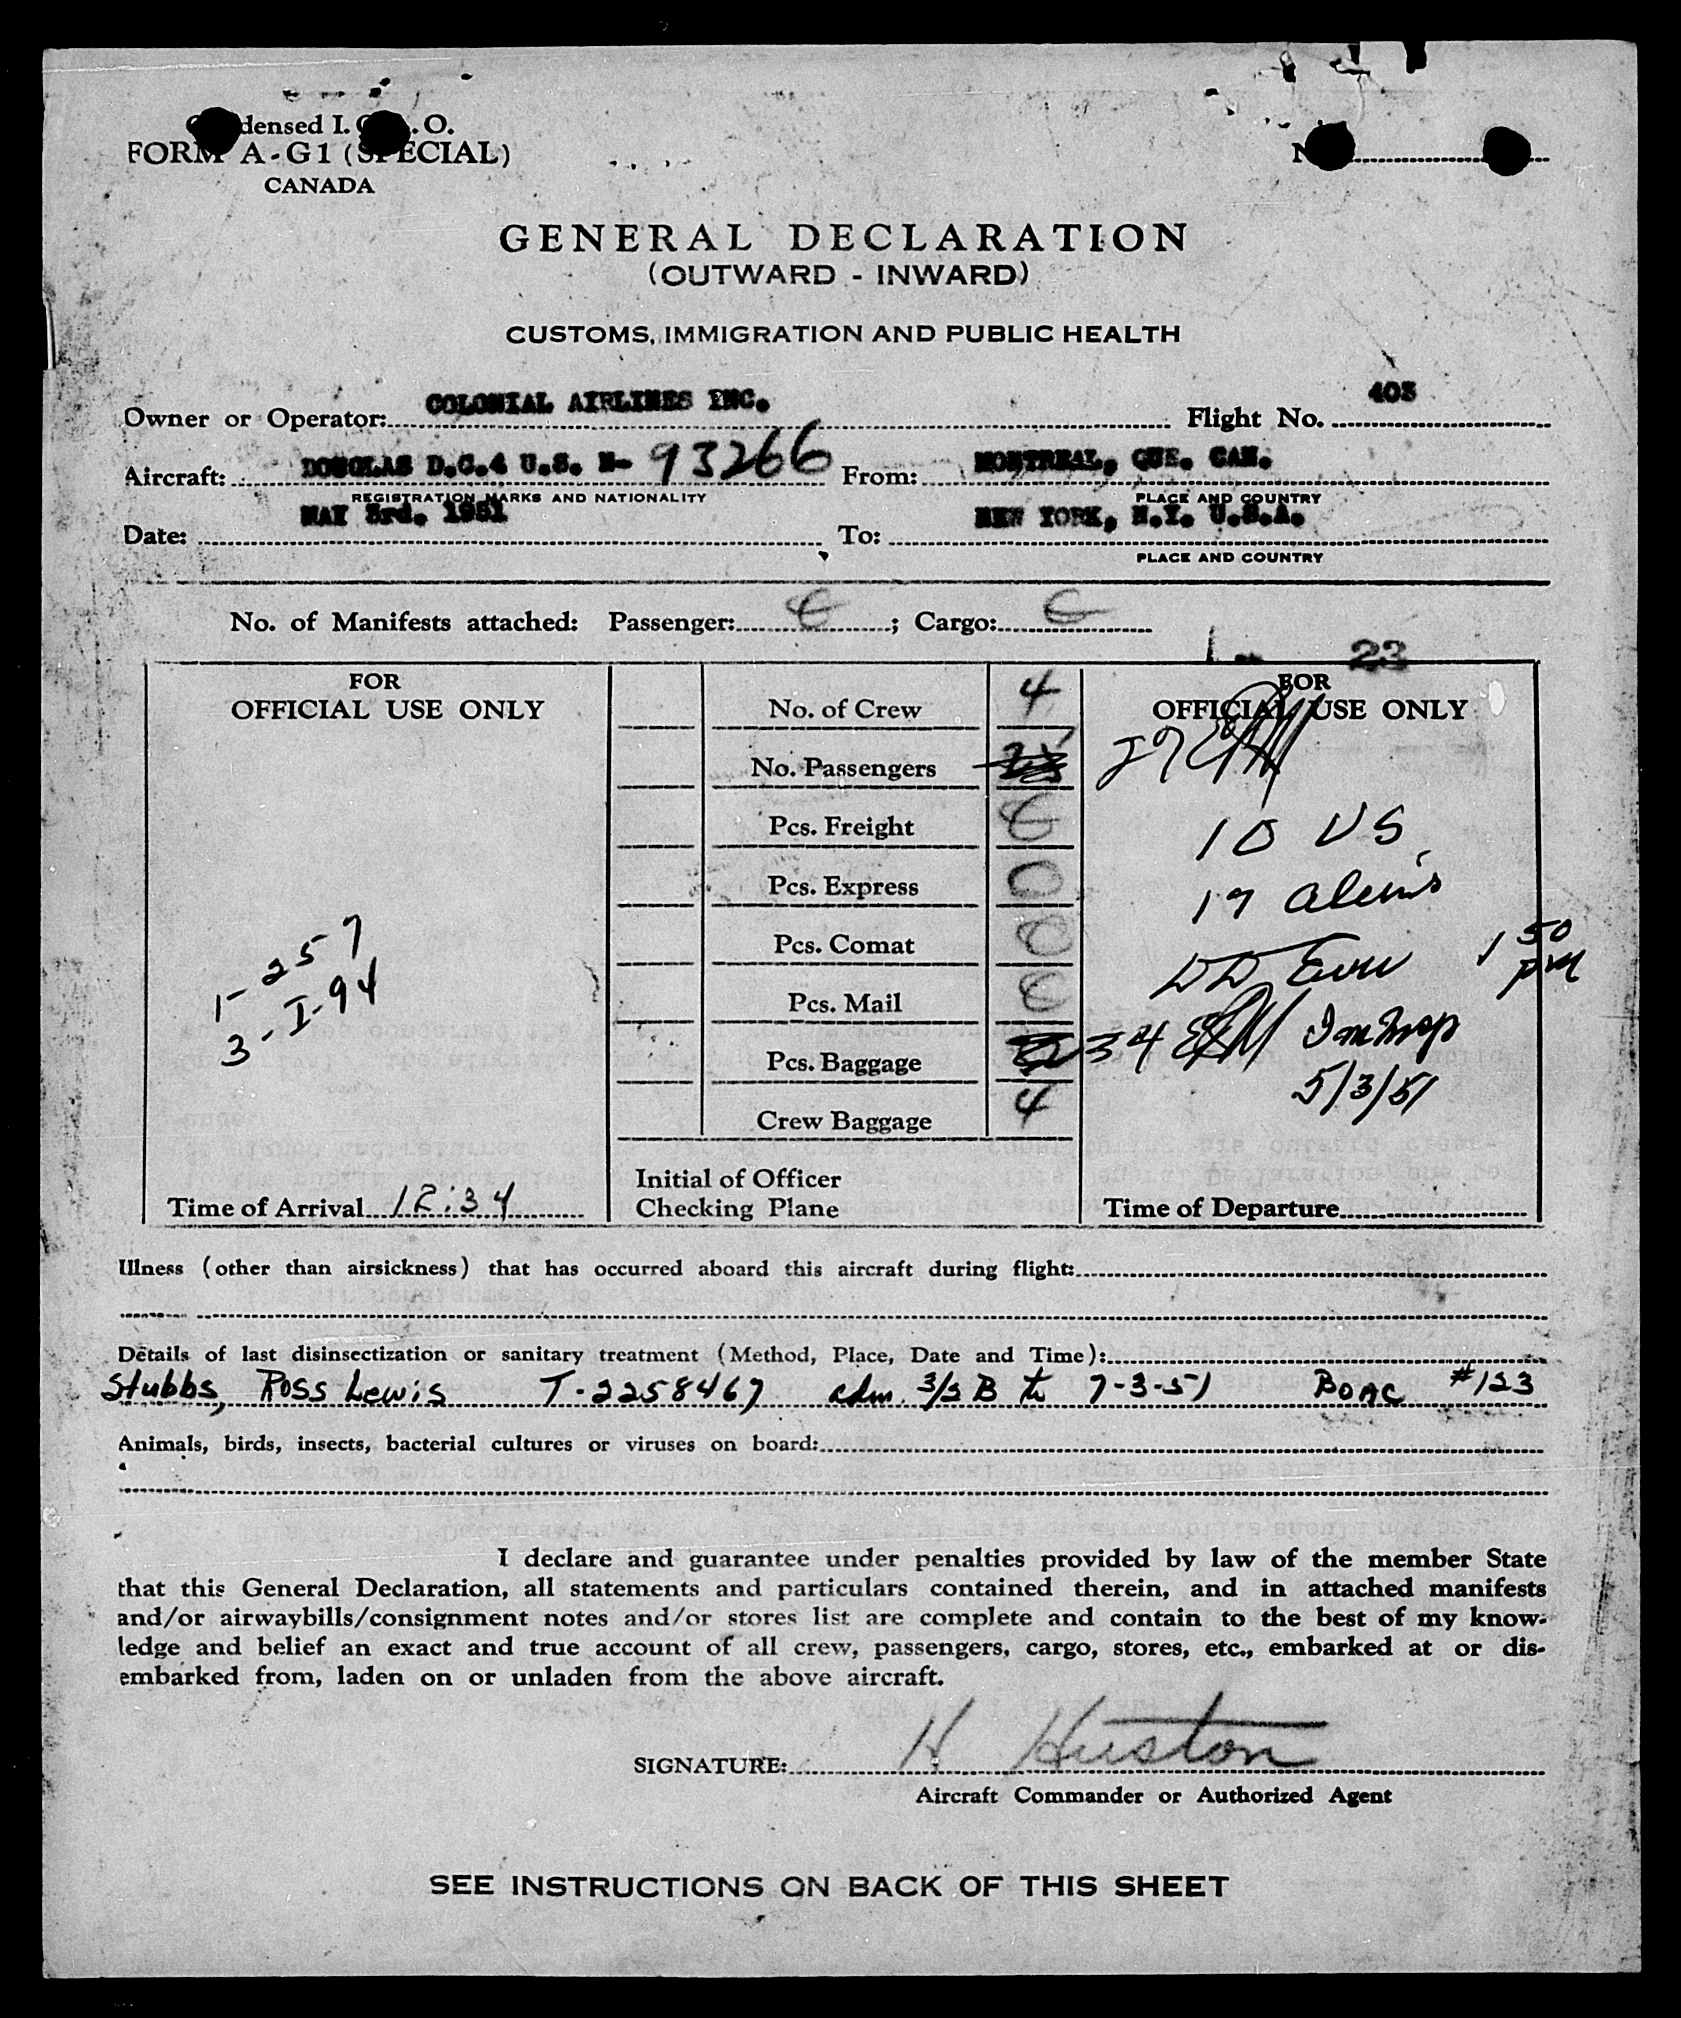 densed I. . O.
FORM A-G1 (SPECIAL)
CANADA
GENERAL DECLARATION
(OUTWARD - INWARD)
CUSTOMS, IMMIGRATION AND PUBLIC HEALTH
Owner or Operator: COLONIAL AIRLINES INC. Flight No. 403
Aircraft: DOUGLAS D.C.4 U.S. N- 93266 From: MONTREAL, QUE. CAN.
REGISTRATION MARKS AND NATIONALITY PLACE AND COUNTRY
Date: MAY 3rd. 1951 To: NEW YORK, N.Y. U.S.A.
PLACE AND COUNTRY
No. of Manifests attached: Passenger: ; Cargo:
23
FOR
OFFICIAL USE ONLY
1-257
3-I-94
Time of Arrival 12:34
No. of Crew 4
No. Passengers
Pcs. Freight
Pcs. Express 0
Pcs. Comat 0
Pcs. Mail
Pcs. Baggage 34
Crew Baggage 4
Initial of Officer
Checking Plane
FOR
OFFICIAL USE ONLY
27
10 US
17 aliens
1 50 PM
Im Insp
5/3/51
Time of Departure
Illness (other than airsickness) that has occurred aboard this aircraft during flight:
Details of last disinsectization or sanitary treatment (Method, Place, Date and Time):
Stubbs, Ross Lewis T-2258467 adm. 3/2 B to 7-3-51 BOAC #123
Animals, birds, insects, bacterial cultures or viruses on board:
I declare and guarantee under penalties provided by law of the member State
that this General Declaration, all statements and particulars contained therein, and in attached manifests
and/or airwaybills/consignment notes and/or stores list are complete and contain to the best of my know-
ledge and belief an exact and true account of all crew, passengers, cargo, stores, etc., embarked at or dis-
embarked from, laden on or unladen from the above aircraft.
SIGNATURE: H Huston
Aircraft Commander or Authorized Agent
SEE INSTRUCTIONS ON BACK OF THIS SHEET